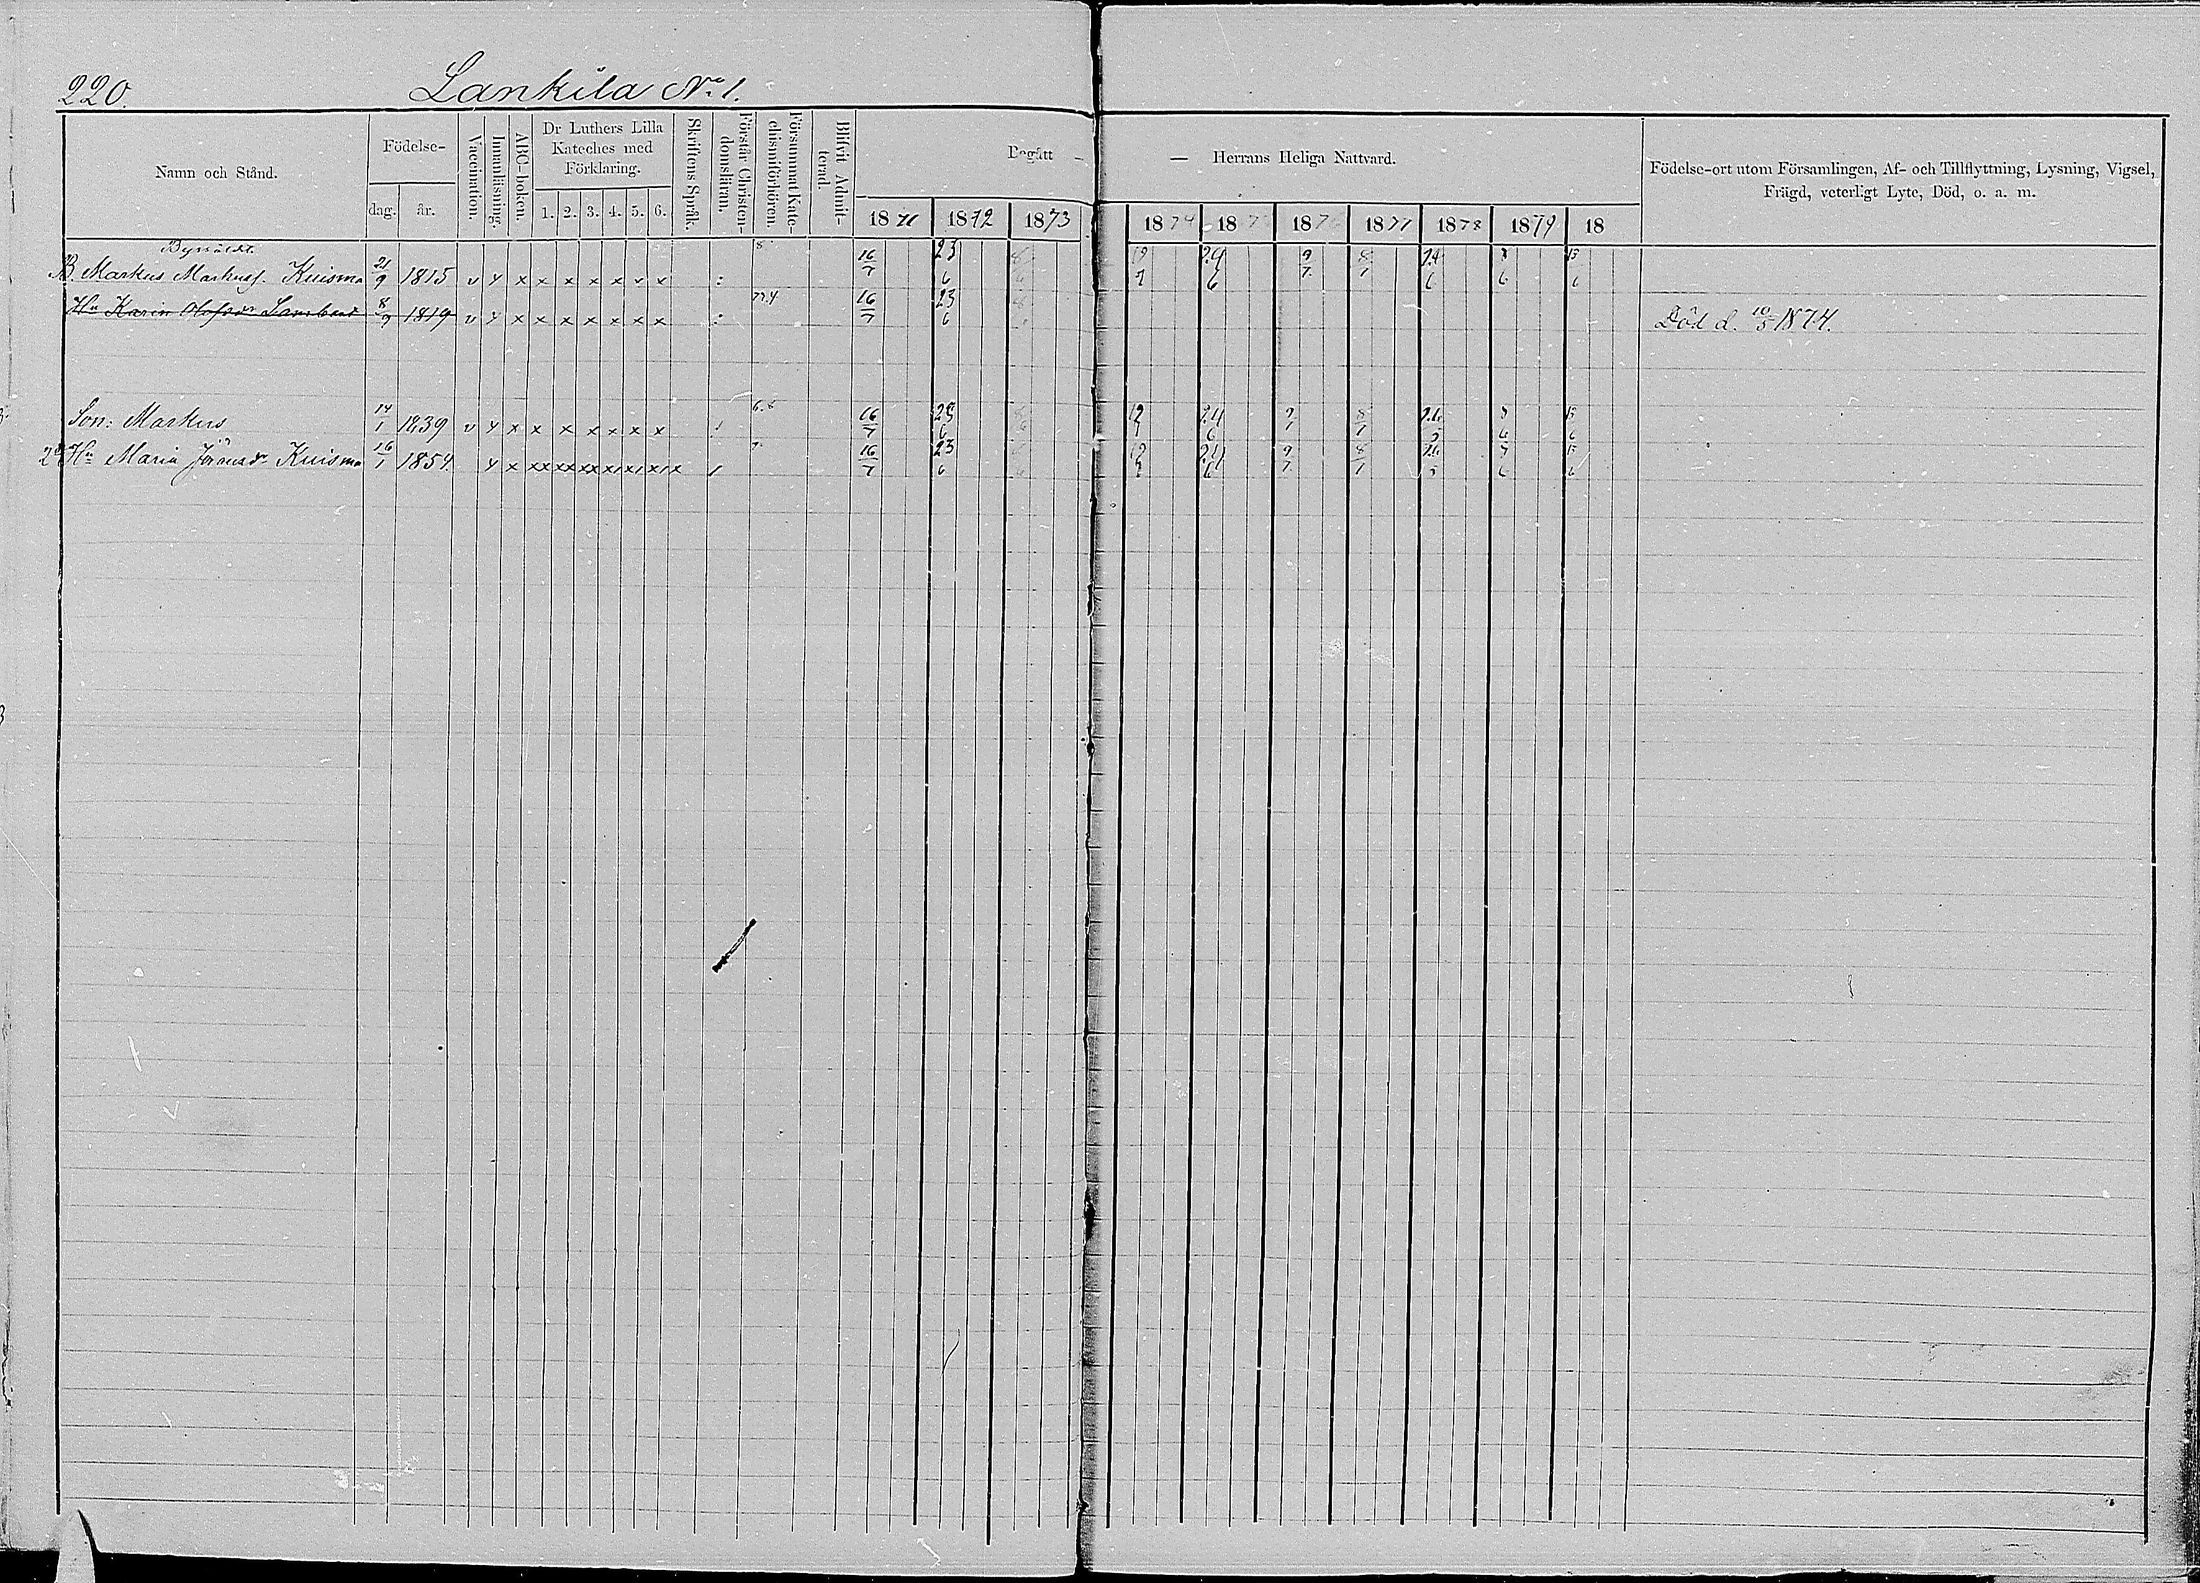 220. Lankila No 1.
Namn och Stånd.
Födelse-
dag. år.
Vaccination.
Innanläsning.
ABC-boken.
Dr Luthers Lilla
Kateches med
Förklaring.
1. 2. 3. 4. 5. 6.
Skriftens Språk.
Förstår Christen-
domsläran.
Försummat Kate-
chismiförhören.
Blifvit Admit-
terad.
Begått — Herrans Heliga Nattvard.
1871 1872 1873 1874 187 187 1877 1878 1879 18
Födelse-ort utom Församlingen, Af- och Tillflyttning, Lysning, Vigsel,
Frägd, veterligt Lyte, Död, o. a. m.
B. Markus Markuss. Kuisma 21/9 1815 v y x x x x x x x : 16/7 23/6 24/6 9/7 8/7 24/6
Hu Karin Olofsdr 8/9 1819 v y x x x x x x x : 16/7 23/6 Död d. 10/5 1874.
Son: Markus 14/1 1839 v y x x x x x x x / 6.8 16/7 23/6 24/6 9/7 8/7
2a Hu Maria Kuisma 16/1 1854 y x xx xx xx xx / 16/7 23/6 24/6 9/7 8/7